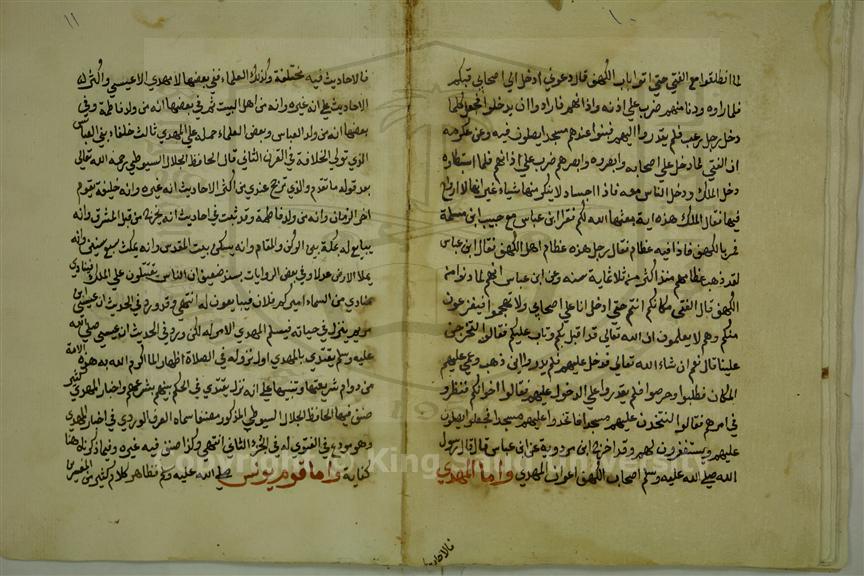 ١٠
لما انطلقوا مع الفتى حتى اتوا باب الكهف قال دعوني ادخل الى اصحابي قبلكم
فلما راوه ودنا منهم ضرب على اذنه واذانهم فارادوا ان يدخلوا فجعل كلما
دخل رجل رعب فلم يقدروا اليهم فبنوا عندهم مسجدا يصلون فيه وعن عكرمة
ان الفتى لما دخل على اصحابه وابصروه وابصرهم ضرب على اذانهم فلما استبطاوه
دخل الملك ودخل الناس معه فاذا اجساد لا ينكرون منها شياء غير انها لا ارواح
فيها فقال الملك هذه اية بعثها الله لكم فغزا ابن عباس مع حبيب ابن مسلمة
فمر بالكهف فاذا فيه عظام فقال رجل هذه عظام اهل الكهف فقال ابن عباس
لقد ذهب عظامهم منذ اكثر من ثلاثماية سنه وعن ابن عباس انهم لما دنوا من
الكهف قال الفتى مكانكم انتم حتى ادخل انا على اصحابي ولا تهجموا فيفزعون
منكم وهم لا يعلمون ان الله تعالى قد اقبل بكم وتاب عليكم فقالوا لتخرجن
علينا قال نعم ان شاء الله تعالى فدخل عليهم فلم يدروا اين ذهب وعمي عليهم
المكان فطلبوا وحرصوا فلم يقدروا على الدخول عليهم فقالوا اخوانكم فنظروا
في امرهم فقالوا لنتخذن عليهم مسجدا فاتخذوا عليهم مسجدا فجعلوا يصلون
عليهم ويستغفرون لهم وقد اخرج ابن مردويه عن ابن عباس قال قال رسول
الله صلى الله عليه وسلم اصحاب الكهف اعوان المهدي واما المهدي
فالاحاديث
١١
فالاحاديث فيه مختلفة وكذلك العلماء ففي بعضها لا مهدي الا عيسى واكثر
الاحاديث على انه غيره وانه من اهل البيت ثم في بعضها انه من ولد فاطمة وفي
بعضها انه من ولد العباس وبعض العلماء حمله على المهدي ثالث خلفاء بني العباس
الذي تولى الخلافة في القرن الثاني قال الحافظ الجلال السيوطي رحمه الله تعالى
بعد قوله ما تقدم والذي ترجح عندي من اكثر الاحاديث انه غيره وانه خليفة يقوم
اخر الزمان وانه من ولد فاطمة وقد ثبت في احاديث انه يخرج من قبل المشرق وانه
يبايع له بمكة بين الركن والمقام وانه يسكن بيت المقدس وانه يمكث سبع سنين وانه
يملا الارض عدلا وفي بعض الروايات بسند ضعيف ان الناس يقتتلون على الملك فينادي
مناد من السماء اميركم فلان فيبايعون له انتهى وقد ورد في الحديث ان عيسى ابن
مريم ينزل في حياته فيسلم المهدي الامر له وورد في الحديث ان عيسى صلى الله
عليه وسلم يقتدي بالمهدي اول نزوله في الصلاة اظهار لما اكرم الله به هذه الامة
من دوام شريعتها وتنبيها على انه نزل يقتدي في الحكم بينهم بشرعهم واخبار المهدي كثير
صنف فيها الحافظ الجلال السيوطي المذكور مصنفا سماه العرف الوردي في اخبار المهدي
وهو مودع في الفتوى له في الجزء الثاني انتهى وكذا صنف فيه غيره وفيما ذكرناه هنا
كفاية واما قوم يونس صلى الله عليه وسلم فظاهر كلام كثير من المفسرين
Copyright © King Saud University